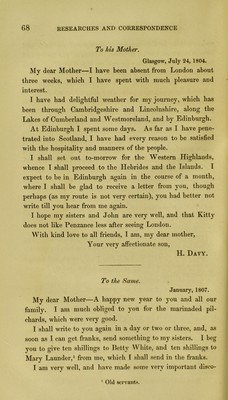 68 RESEARCHES AND CORRESPONDENCE
To his Mother.
Glasgow, July 24, 1804.
My dear Mother—I have been absent from London about
three weeks, which I have spent with much pleasure and
interest.
I have had delightful weather for my journey, which has
been through Cambridgeshire and Lincolnshire, along the
Lakes of Cumberland and Westmoreland, and by Edinburgh.
At Edinburgh I spent some days. As far as I have pene-
trated into Scotland, I have had every reason to be satisfied
with the hospitality and manners of the people.
I shall set out to-morrow for the Western Highlands,
whence I shall proceed to the Hebrides and the Islands. I
expect to be in Edinburgh again in the course of a month,
where I shall be glad to receive a letter from you, though
perhaps (as my route is not very certain), you had better not
write till you hear from me again.
I hope my sisters and John are very well, and that Kitty
does not like Penzance less after seeing London.
With kind love to all friends, I am, my dear mother,
Your very affectionate son,
H. DAVY.
To the Same.
January, 1807.
My dear Mother—A happy new year to you and all our
family. I am much obliged to you for the marinaded pil-
chards, which were very good.
I shall write to you again in a day or two or three, and, as
soon as I can get franks, send something to my sisters. I beg
you to give ten shillings to Betty White, and ten shillings to
Mary Launder,¹ from me, which I shall send in the franks.
I am very well, and have made some very important disco-
¹ Old servants.